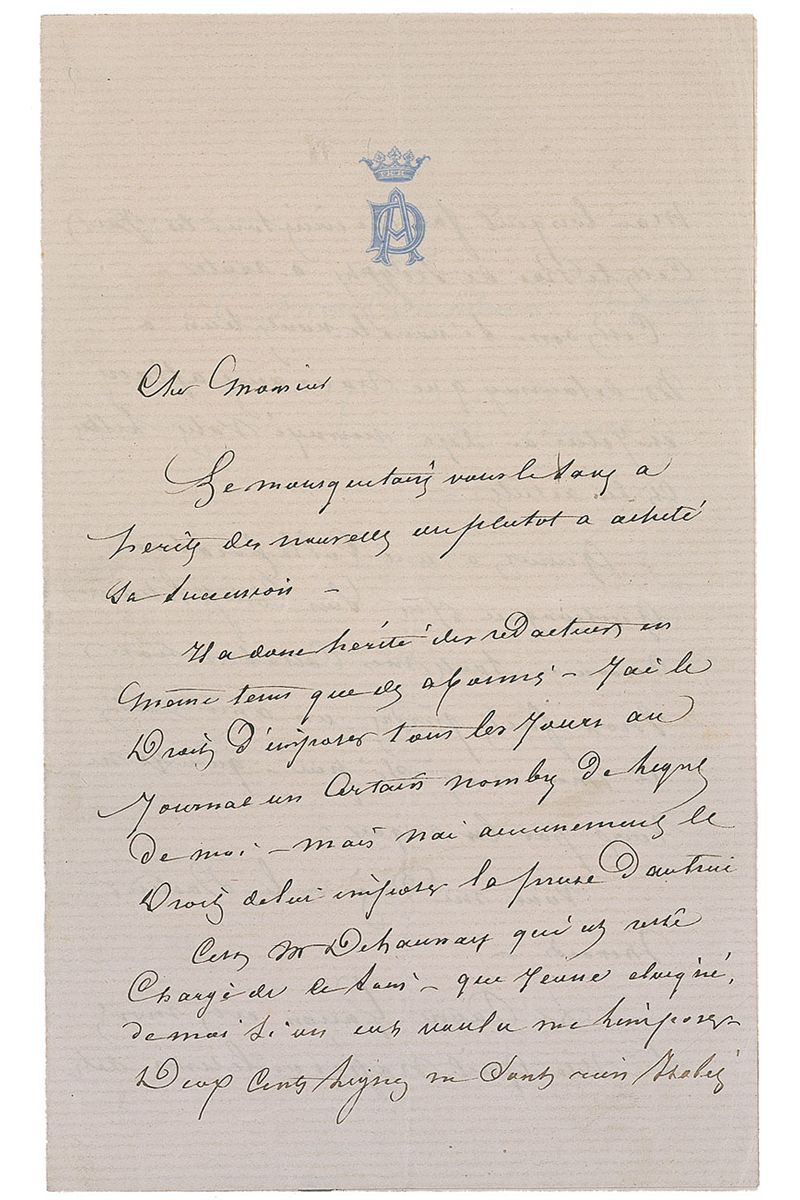 Cher Monsieur
Le mousquetaire vous le savez a
herité des nouvelles ou plutot a acheté
sa succession –
Il a donc hérité des rédacteurs en
meme tems que des abonnés – J'ai le
Droit d'imposer tous les Jours au
Journal un certain nombre de lignes
de moi – mais n'ai aucunement le
Droit de lui imposer la prose d'autrui
C'est Mr Delaunay qui est resté
Chargé de ce soin – que J'eusse eloigné
de moi si on eut voulu me l'imposer
Deux cents lignes